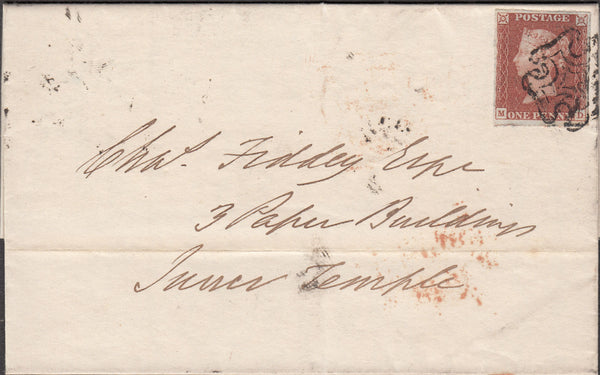 POSTAGE
M ONE PENNY D
Chas. Fiddey Esqe
3 Paper Buildings
Inner Temple